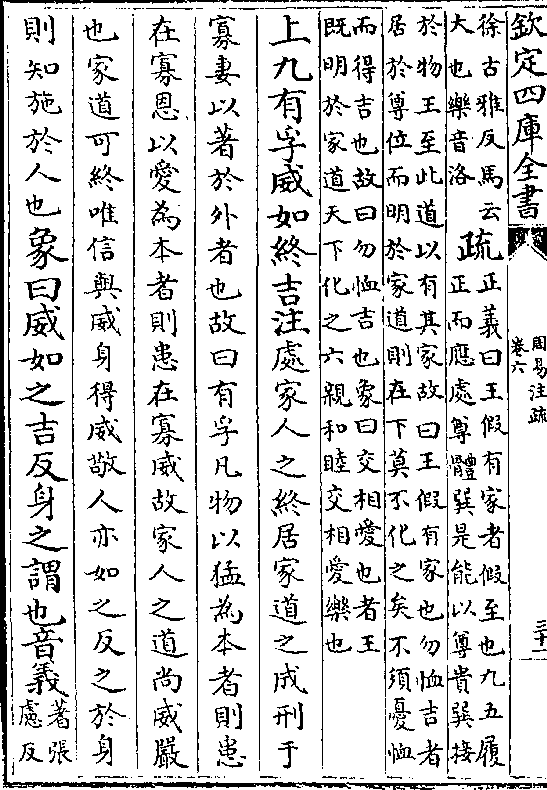 欽定四庫全書
周易注疏
卷六
三十一
徐古雅反馬云
大也樂音洛
疏
正義曰王假有家者假至也九五履
正而應處尊體巽是能以尊貴巽接
於物王至此道以有其家故曰王假有家也勿恤吉者
居於尊位而明於家道則在下莫不化之矣不須憂恤
而得吉也故曰勿恤吉也象曰交相愛也者王
既明於家道天下化之六親和睦交相愛樂也
上九有孚威如終吉注處家人之終居家道之成刑于
寡妻以著於外者也故曰有孚凡物以猛為本者則患
在寡恩以愛為本者則患在寡威故家人之道尚威嚴
也家道可終唯信與威身得威敬人亦如之反之於身
則知施於人也象曰威如之吉反身之謂也音義
著張
慮反